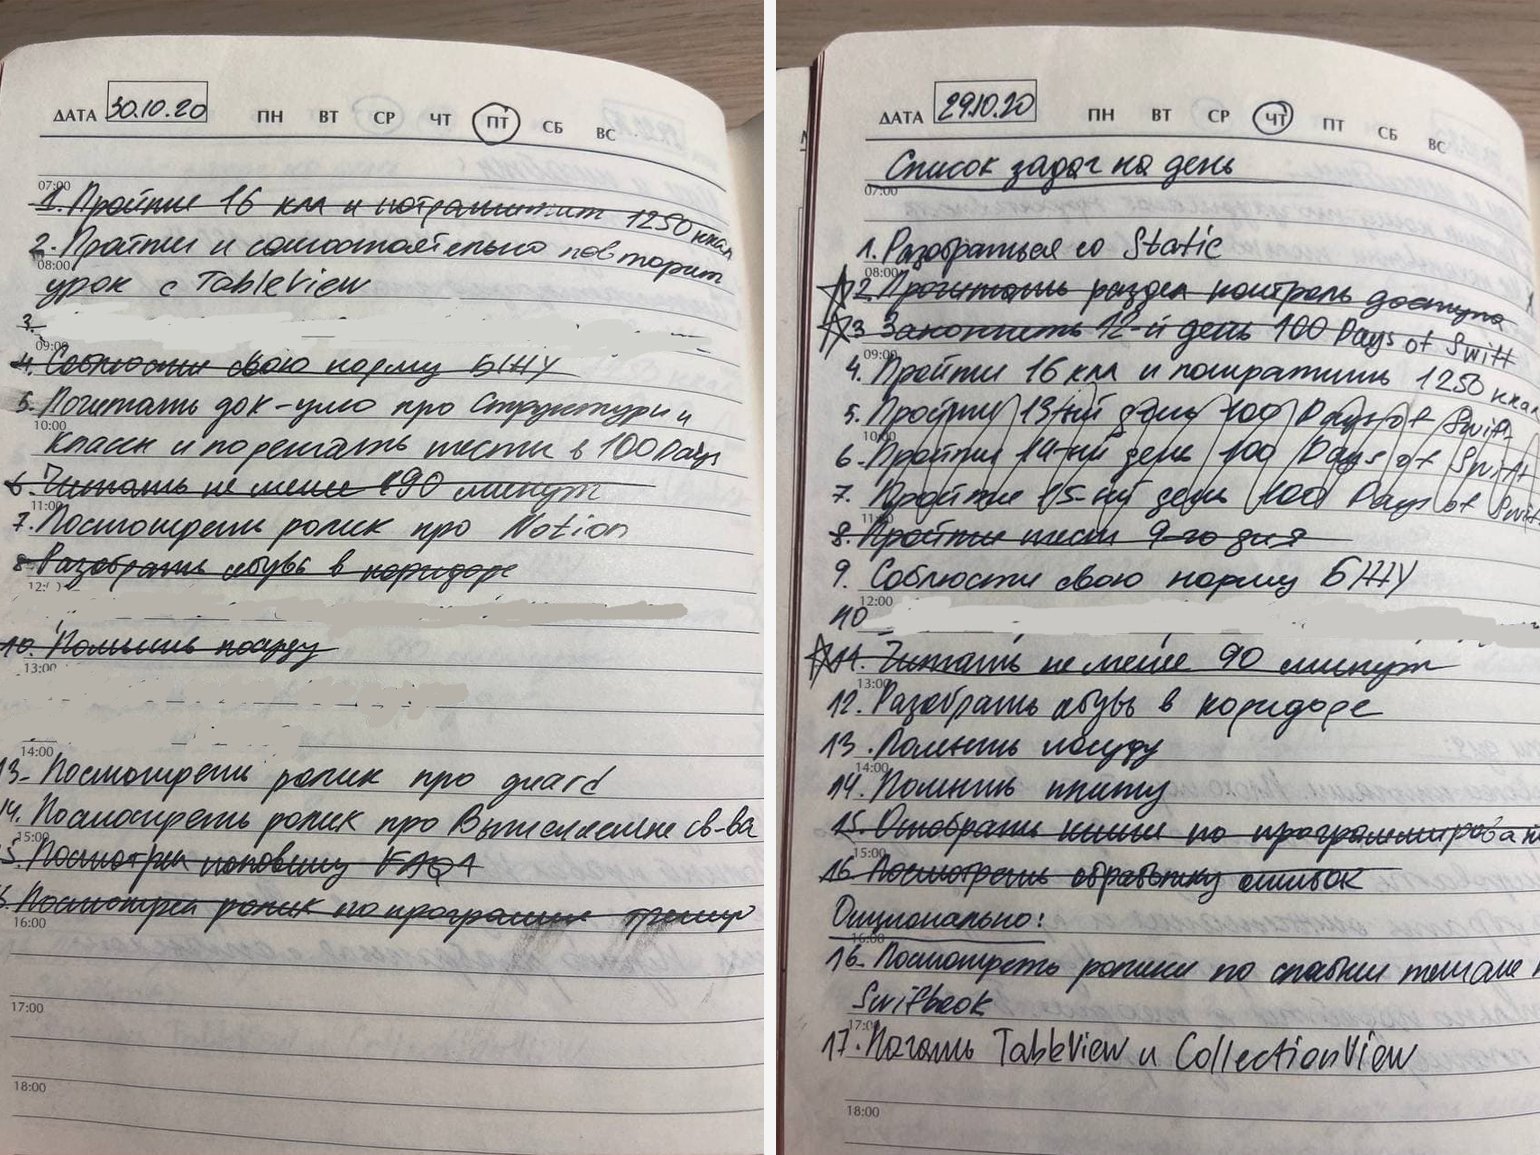 ДАТА 30.10.20 ПН ВТ СР ЧТ ПТ СБ ВС
07:00
1. Пройти 16 км и потратить 1250 ккал
2. Пройти и самостоятельно повторить
08:00
урок с TableView
3.
09:00
4. Соблюсти свою норму БЖУ
5. Почитать док-цию про Структуры и
10:00
классы и порешать тесты в 100 Days
6. Читать не менее 90 минут
11:00
7. Посмотреть ролик про Notion
8. Разобрать обувь в коридоре
12:
10. Помыть посуду
13:00
14:00
13. Посмотреть ролик про guard
14. Посмотреть ролик про Вычисляемые св-ва
15:00
5. Посмотреть половину FAQ 1
6. Посмотреть ролик по программе
16:00
17:00
18:00
ДАТА 29.10.20 ПН ВТ СР ЧТ ПТ СБ ВС
Список задач на день
07:00
1. Разобраться со Static
08:00
2. Прочитать раздел контроль доступа
3 Закончить 12-й день 100 Days of Swift
09:00
4. Пройти 16 км и потратить 1250 ккал
5. Пройти 13-ый день 100 Days of Swift
10:00
6. Пройти 14-ый день 100 Days of Swift
7. Пройти 15-ый день 100 Days of Swift
11:
8. Пройти тест 9-го дня
9. Соблюсти свою норму БЖУ
12:00
10
11. Читать не менее 90 минут
13:00
12. Разобрать обувь в коридоре
13. Помыть посуду
14:00
14. Помыть плиту
15. Отобрать книги по программирова
15:00
16. Посмотреть обработку ошибок
Опционально:
16:00
16. Посмотреть ролики по слабым темам
Swiftbook
17:00
17. Начать TableView и CollectionView
18:00